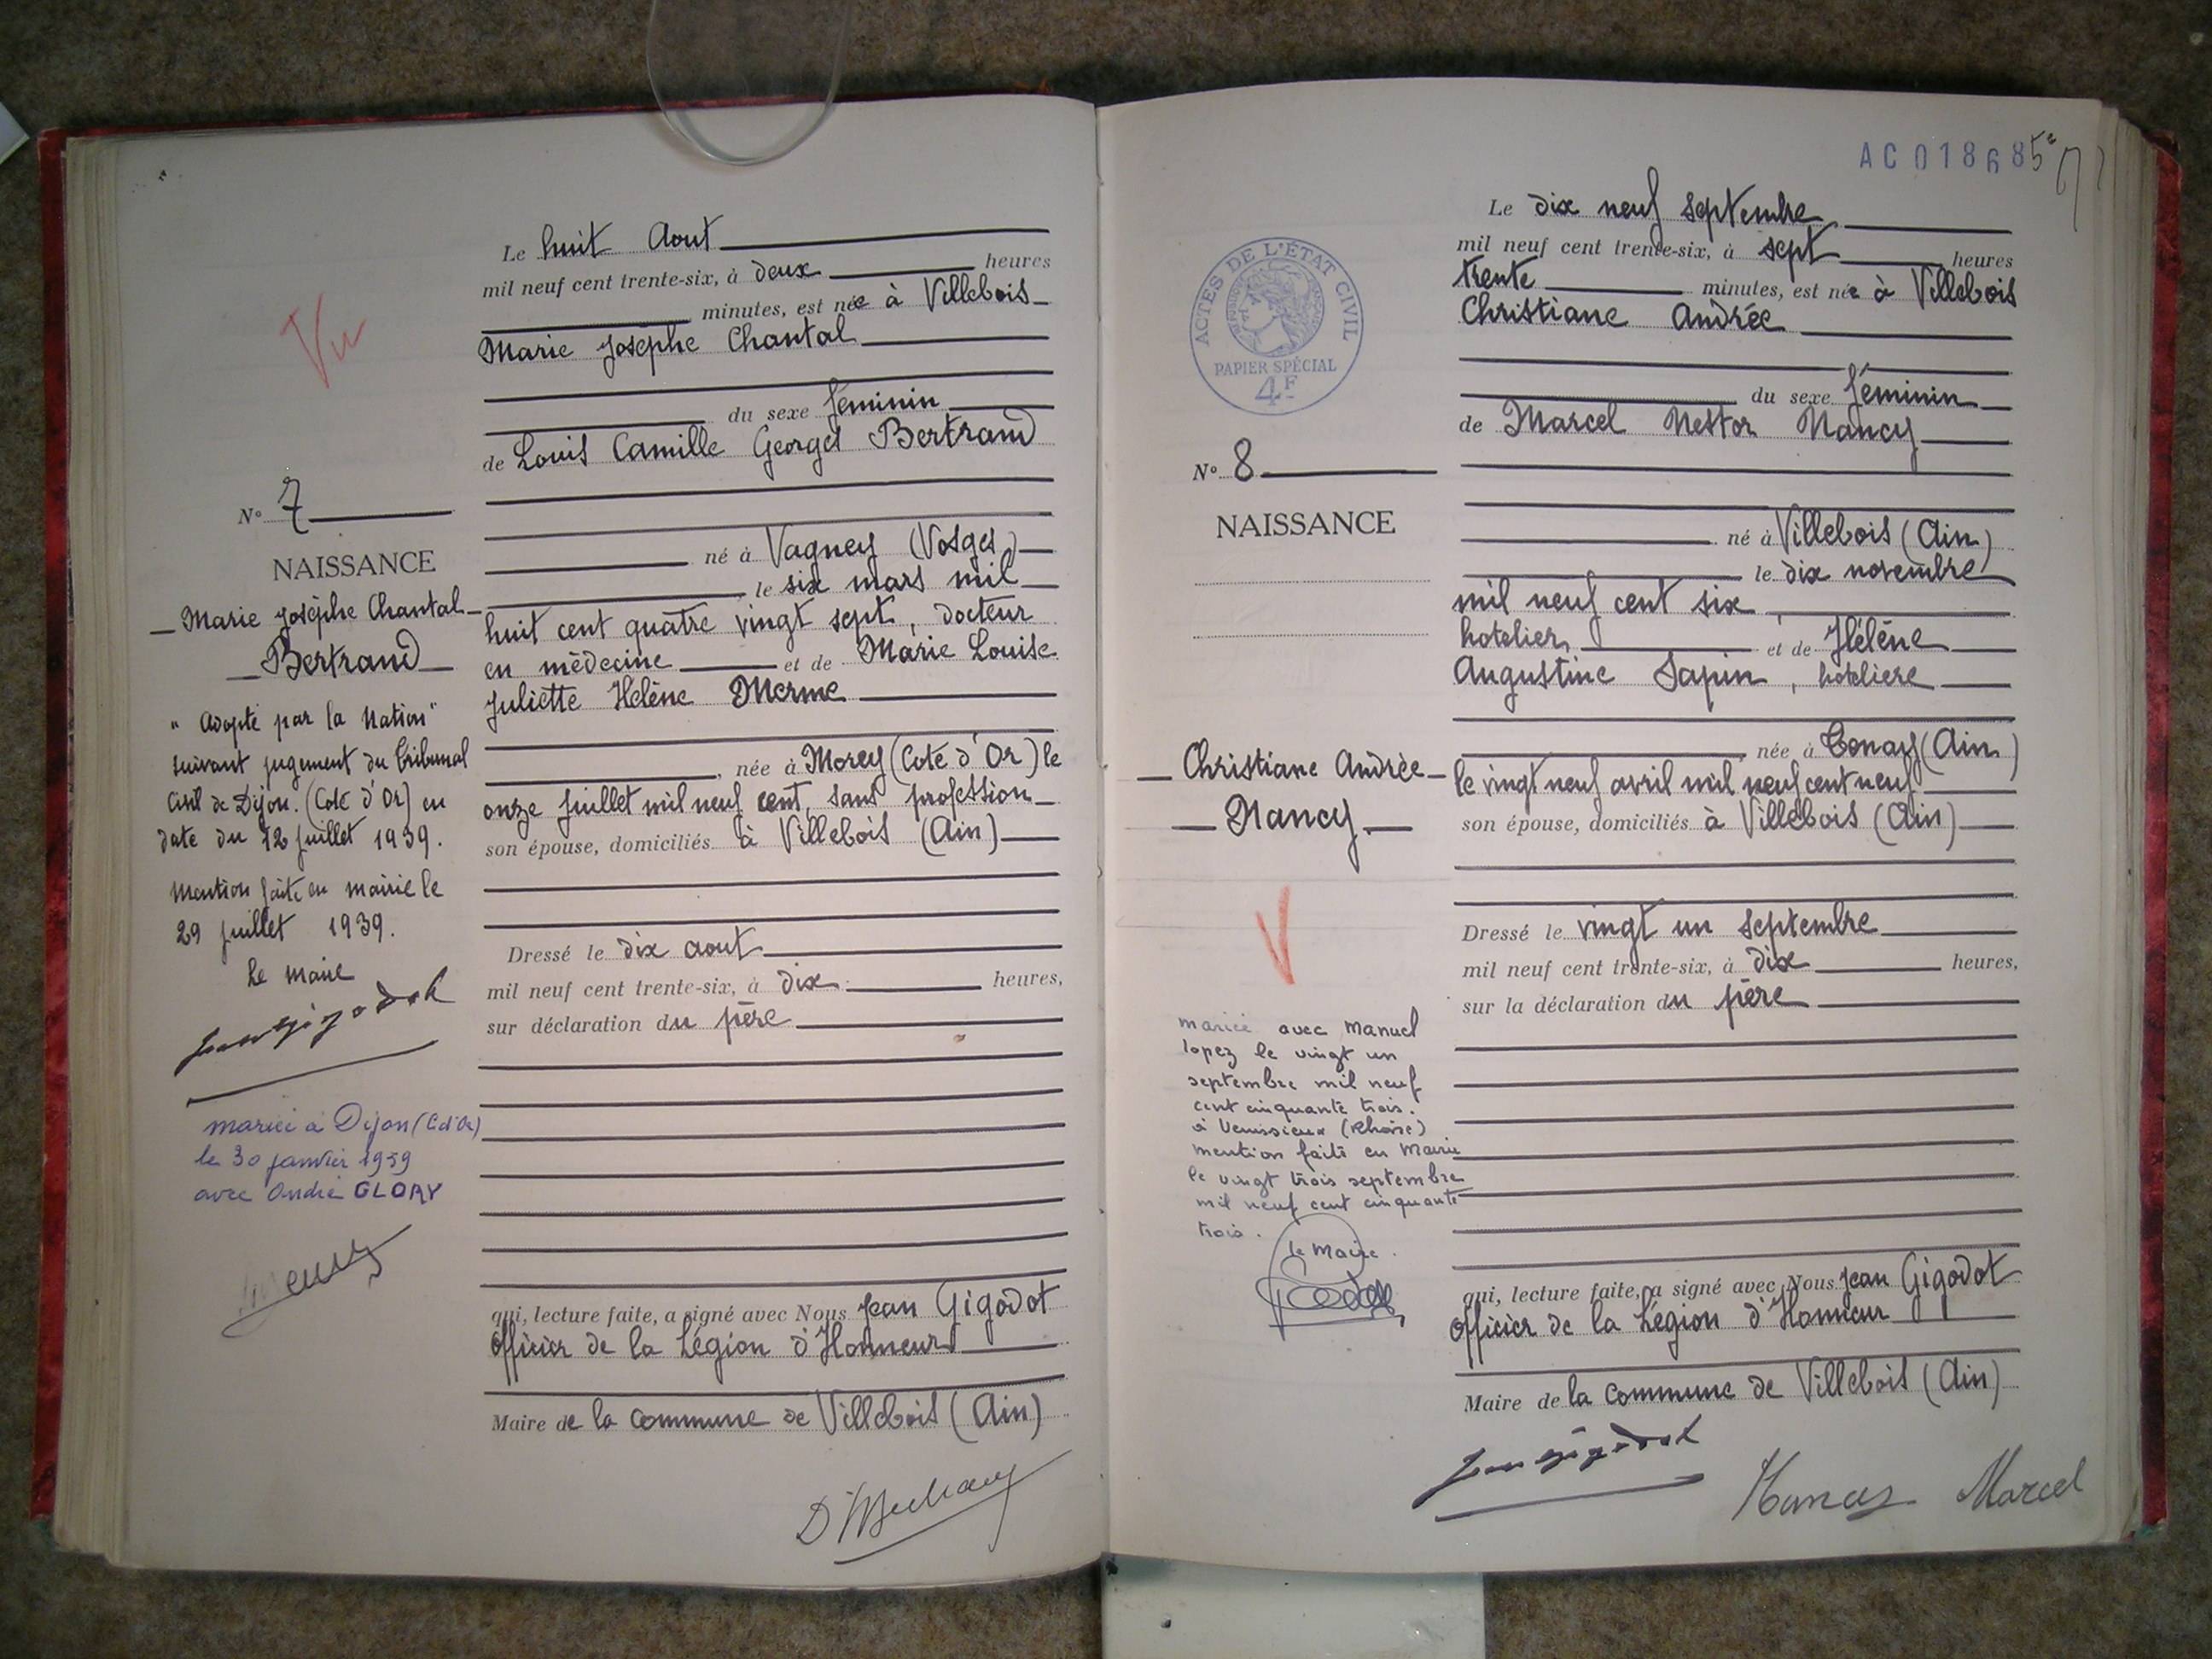 Vu
N° 7
NAISSANCE
Marie Josèphe Chantal
Bertrand
"Adopté par la Nation"
suivant jugement du Tribunal
Civil de Dijon. (Cote d'Or) en
date du 12 juillet 1939.
Mention faite en mairie le
29 juillet 1939.
Le maire
Jean Gigodot
mariée à Dijon (Cd'Or)
le 30 janvier 1959
avec André GLORY
Le huit Aout
mil neuf cent trente-six, à deux heures
minutes, est née à Villebois
Marie Josèphe Chantal
du sexe féminin
de Louis Camille Georges Bertrand
né à Vagney (Vosges)
le six mars mil
huit cent quatre vingt sept, docteur
en médecine et de Marie Louise
Juliette Helène Merme
née à Morey (Cote d'Or) le
onze juillet mil neuf cent, sans profession
son épouse, domiciliés à Villebois (Ain)
Dressé le dix aout
mil neuf cent trente-six, à dix heures,
sur déclaration du père
qui, lecture faite, a signé avec Nous Jean Gigodot
Officier de la Légion d'Honneur
Maire de la commune de Villebois (Ain)
AC 018685
ACTES DE L'ÉTAT CIVIL
PAPIER SPÉCIAL
4F
N° 8
NAISSANCE
Christiane Andrée
Nancy
V
mariée avec Manuel
lopez le vingt un
septembre mil neuf
cent cinquante trois.
à Venissieux (Rhône)
mention faite en Mairie
le vingt trois septembre
mil neuf cent cinquante
trois.
le Maire.
Le dix neuf septembre
mil neuf cent trente-six, à sept heures
trente minutes, est née à Villebois
Christiane Andrée
du sexe féminin
de Marcel Nestor Nancy
né à Villebois (Ain)
le dix novembre
mil neuf cent six
hotelier et de Hélène
Augustine Sapin, hoteliere
née à Tenay (Ain)
le vingt neuf avril mil neuf cent neuf
son épouse, domiciliés à Villebois (Ain)
Dressé le vingt un septembre
mil neuf cent trente-six, à dix heures,
sur la déclaration du père
qui, lecture faite, a signé avec Nous Jean Gigodot
Officier de la Légion d'Honneur
Maire de la commune de Villebois (Ain)
Jean Gigodot
Nancy Marcel